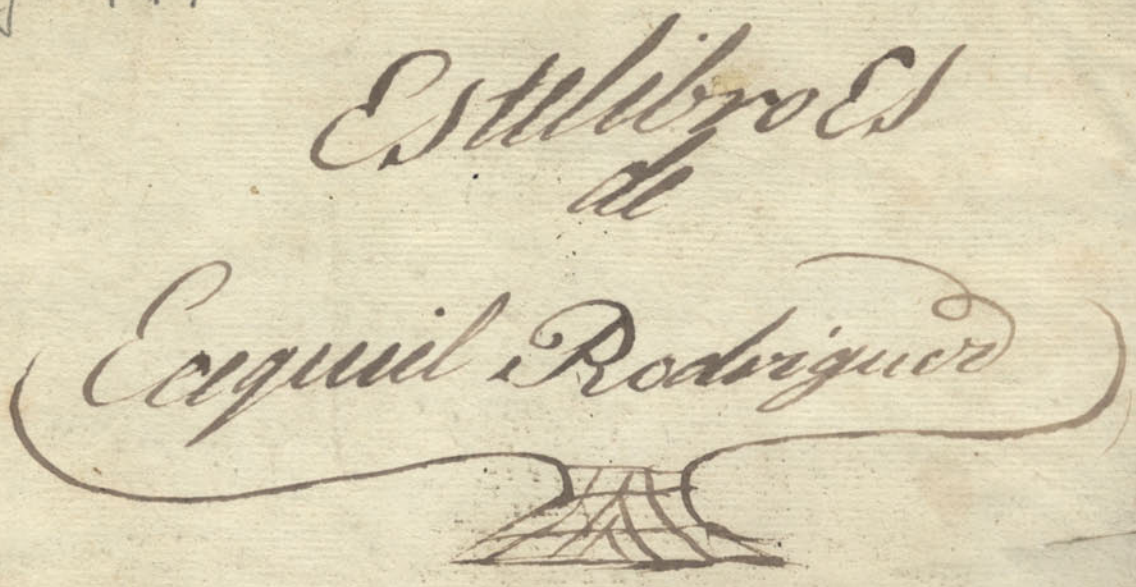 Este libro Es
de
Ecequiel Rodriguez